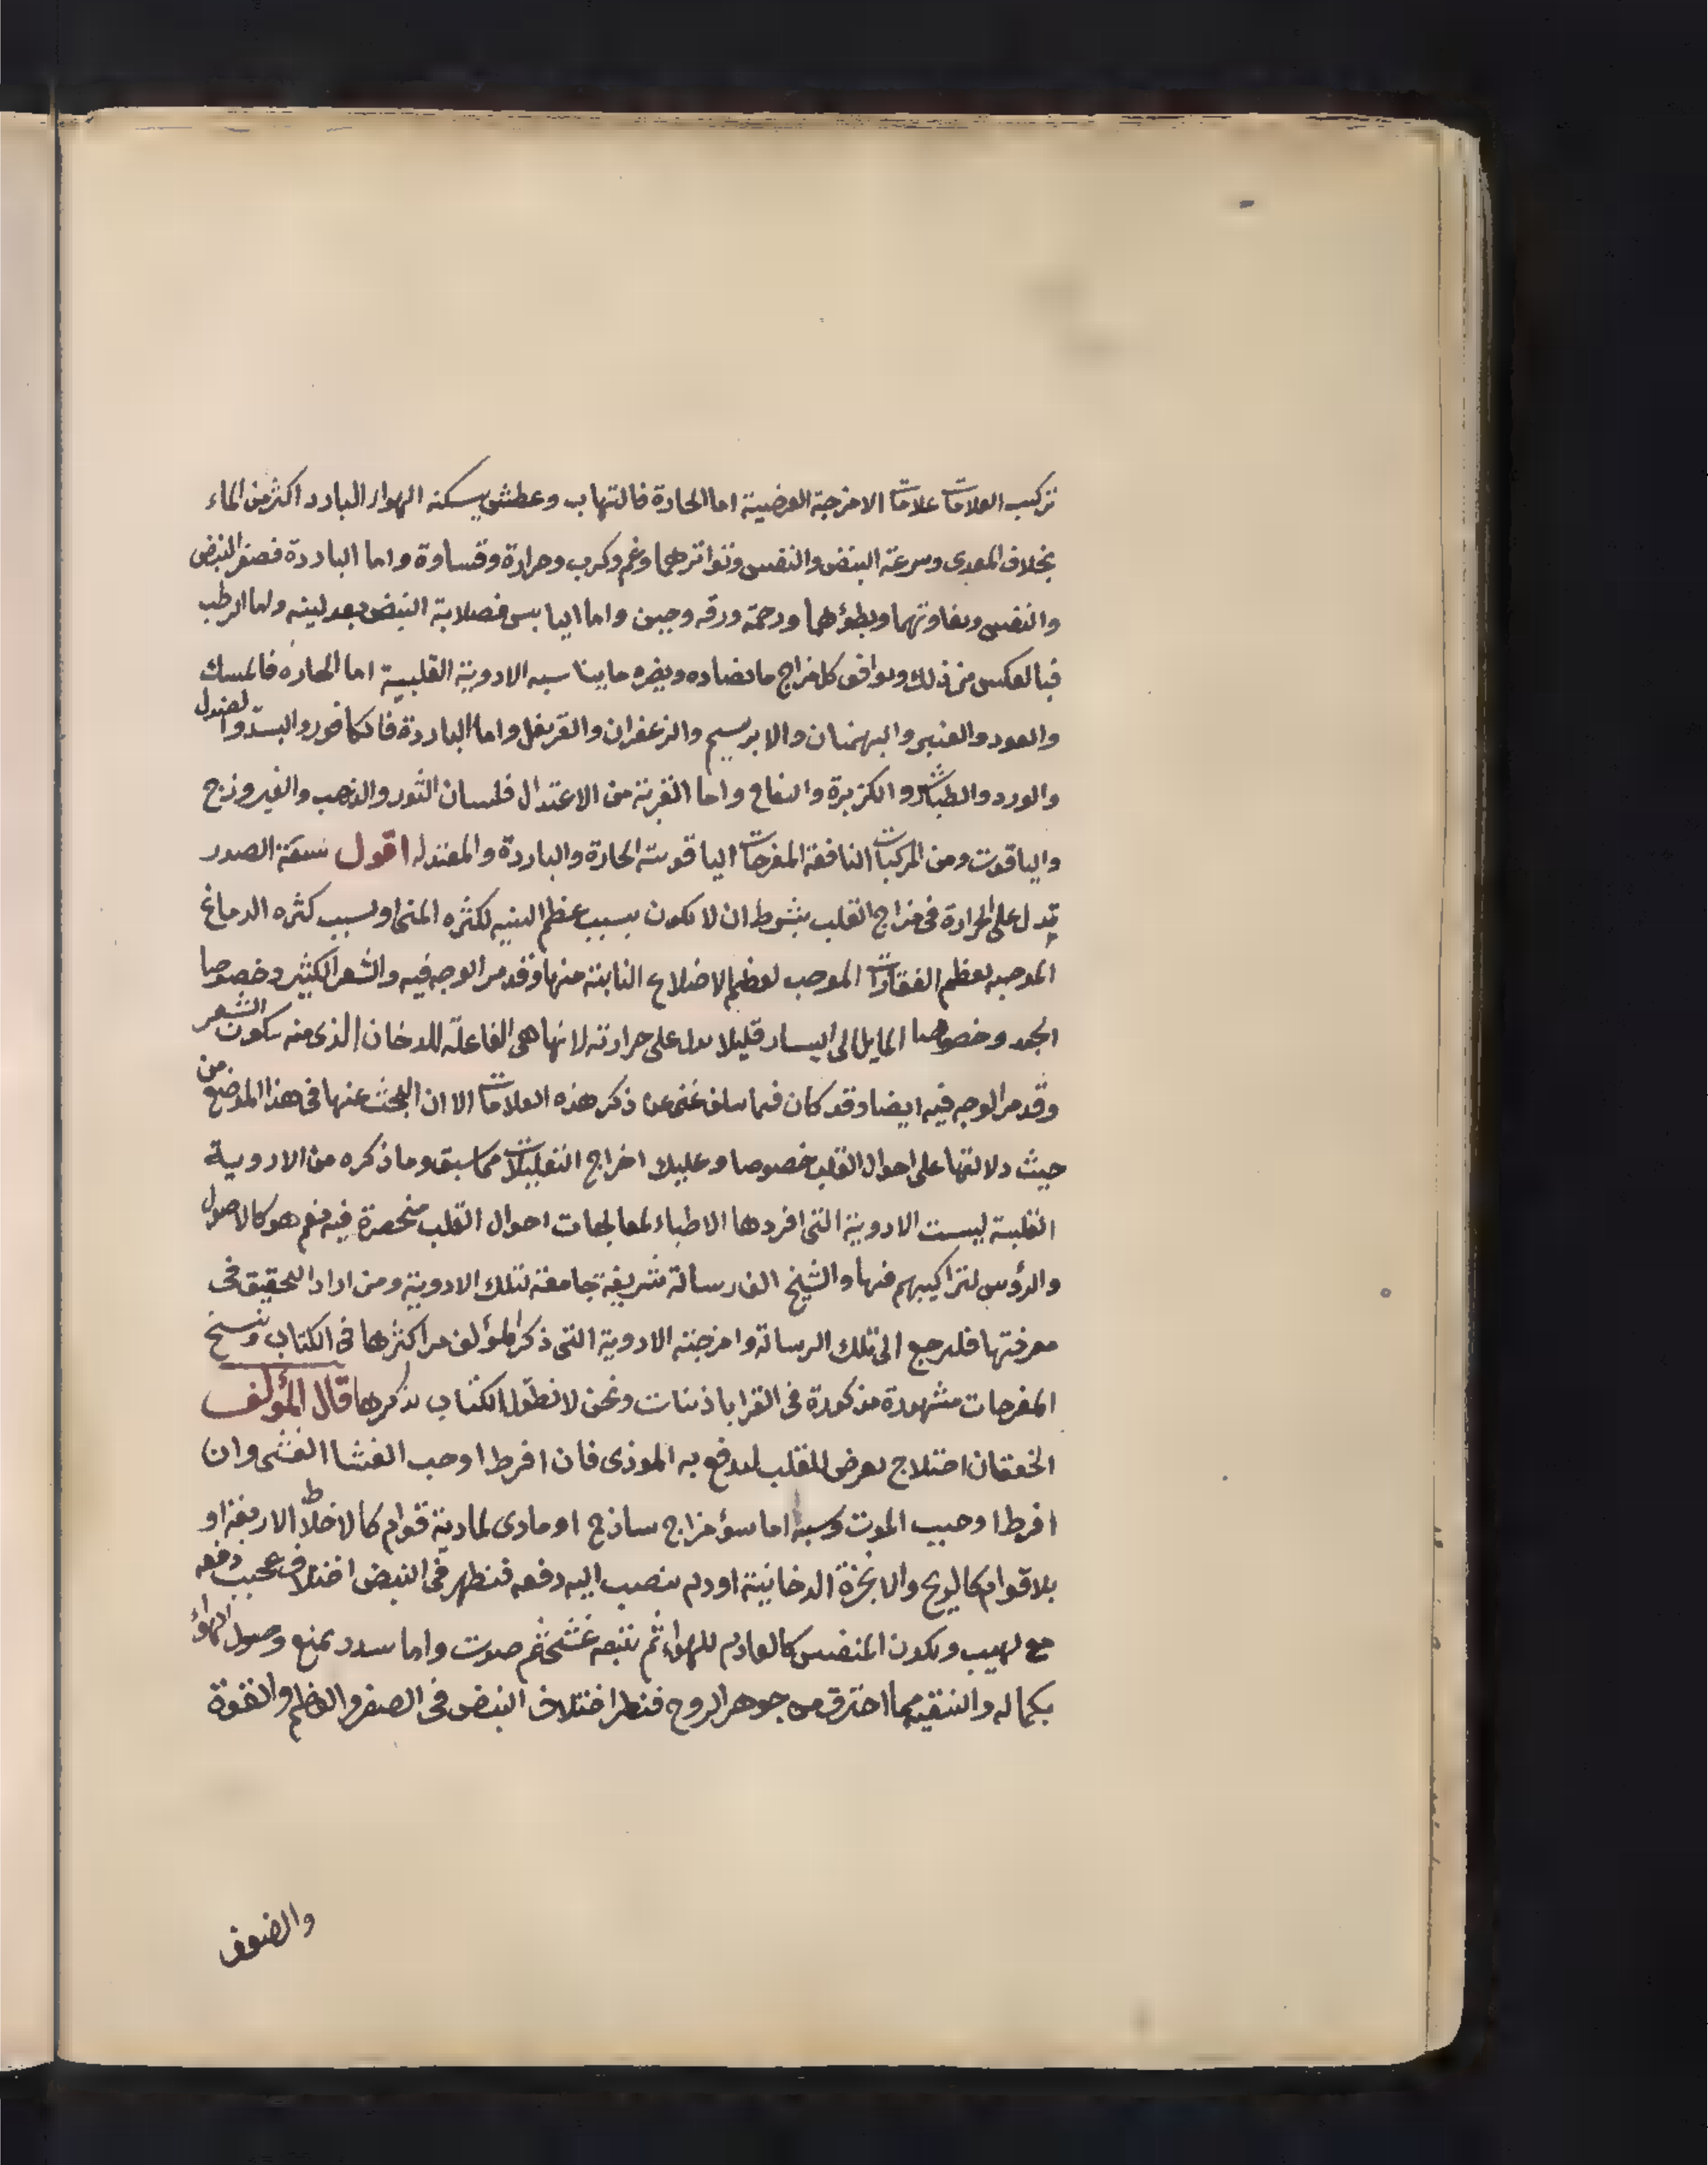 تركيب العلامات علامات الامزجة العرضية اما الحارة فالتهاب وعطش يسكنه الهواء البارد اكثر من الماء
بخلاف المعدى وسرعة النبض والنفس وتواترهما وغم وكرب وحرارة وقساوة واما الباردة فصغر النبض
والنفس وتفاوتهما وبطؤهما ورحمة ورقه وجبن واما اليابس فصلابة النبض بعد لينه واما الرطب
فبالعكس من ذلك ويوافق كل مزاج ما يضاده ويضره ما يناسبه الادوية القلبية اما الحاره فالمسك
والعود والعنبر والبهمنان والابريسم والزعفران والقرنفل واما الباردة فالكافور والبسد والصندل
والورد والطباشير والكزبرة والتفاح واما القريبة من الاعتدال فلسان الثور والذهب والفيروزج
والياقوت ومن المركبات النافعة المفرحات الياقوتيه الحارة والباردة والمعتدله اقول سعة الصدر
تدل على الحرارة فى مزاج القلب بشرط ان لا يكون بسبب عظم البنيه لكثره المنى او بسبب كثره الدماغ
الموجبه لعظم الفقارات الموجب لعظم الاضلاع النابتة منها وقد مر الوجه فيه والشعر الكثير وخصوصا
الجعد وخصوصا المايل الى اليسار قليلا يدل على حرارته لانها هى الفاعلة للدخان الذى منه يتكون الشعر
وقد مر الوجه فيه ايضا وقد كان فيما سلف غنى عن ذكر هذه العلامات الا ان البحث عنها فى هذا الموضع من
حيث دلالتها على احوال القلب خصوصا وعليك اخراج التعليلات مما سبق وما ذكره من الادوية
القلبية ليست الادوية التى افردها الاطباء لمعالجات احوال القلب منحصرة فيه نعم هو كالاصول
والرؤس لتراكيبهم فيها والشيخ الف رسالة شريفة جامعة لتلك الادوية ومن اراد التحقيق فى
معرفتها فليرجع الى تلك الرسالة وامزجة الادوية التى ذكر المؤلف مر اكثرها فى الكتاب ونسخ
المفرحات مشهورة مذكورة فى القراباذينات ونحن لا نطول الكتاب بذكرها قال المؤلف
الخفقان اختلاج يعرض للقلب ليدفع به الموذى فان افرط اوجب الغشا الغشى وان
افرط اوجب الموت وسببه اما سؤ مزاج ساذج او مادى لمادية قوام كالاخلاط الاربعة او
بلا قوام كالريح والابخرة الدخانية او دم ينصب اليه دفعه فيظهر فى النبض اختلاف عجيب دفعه
مع لهيب ويكون المتنفس كالعادم للهواء ثم يتبعه غشى ثم موت واما سدد يمنع وصول الهواء
بكماله والتنقيه مما احترق من جوهر الروح فيظهر اختلاف النبض فى الصغر والعظم والقوة
والضعف